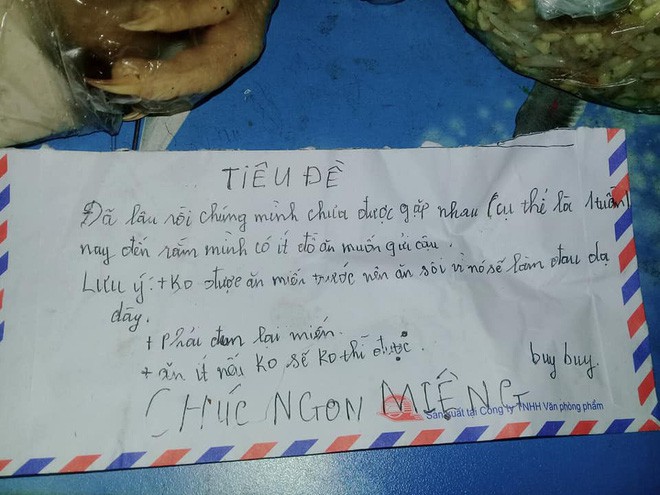 TIÊU ĐỀ
Đã lâu rồi chúng mình chưa được gặp nhau (cụ thể là 1 tuần)
nay đến rằm mình có ít đồ ăn muốn gửi cậu.
Lưu ý: + Ko được ăn miến trước nên ăn sôi vì nó sẽ làm đau dạ
dày.
+ Phải đun lại miến.
+ ăn ít nếu ko sẽ ko thi được.
buy buy.
CHÚC NGON MIỆNG
Sản xuất tại Công ty TNHH Văn phòng phẩm